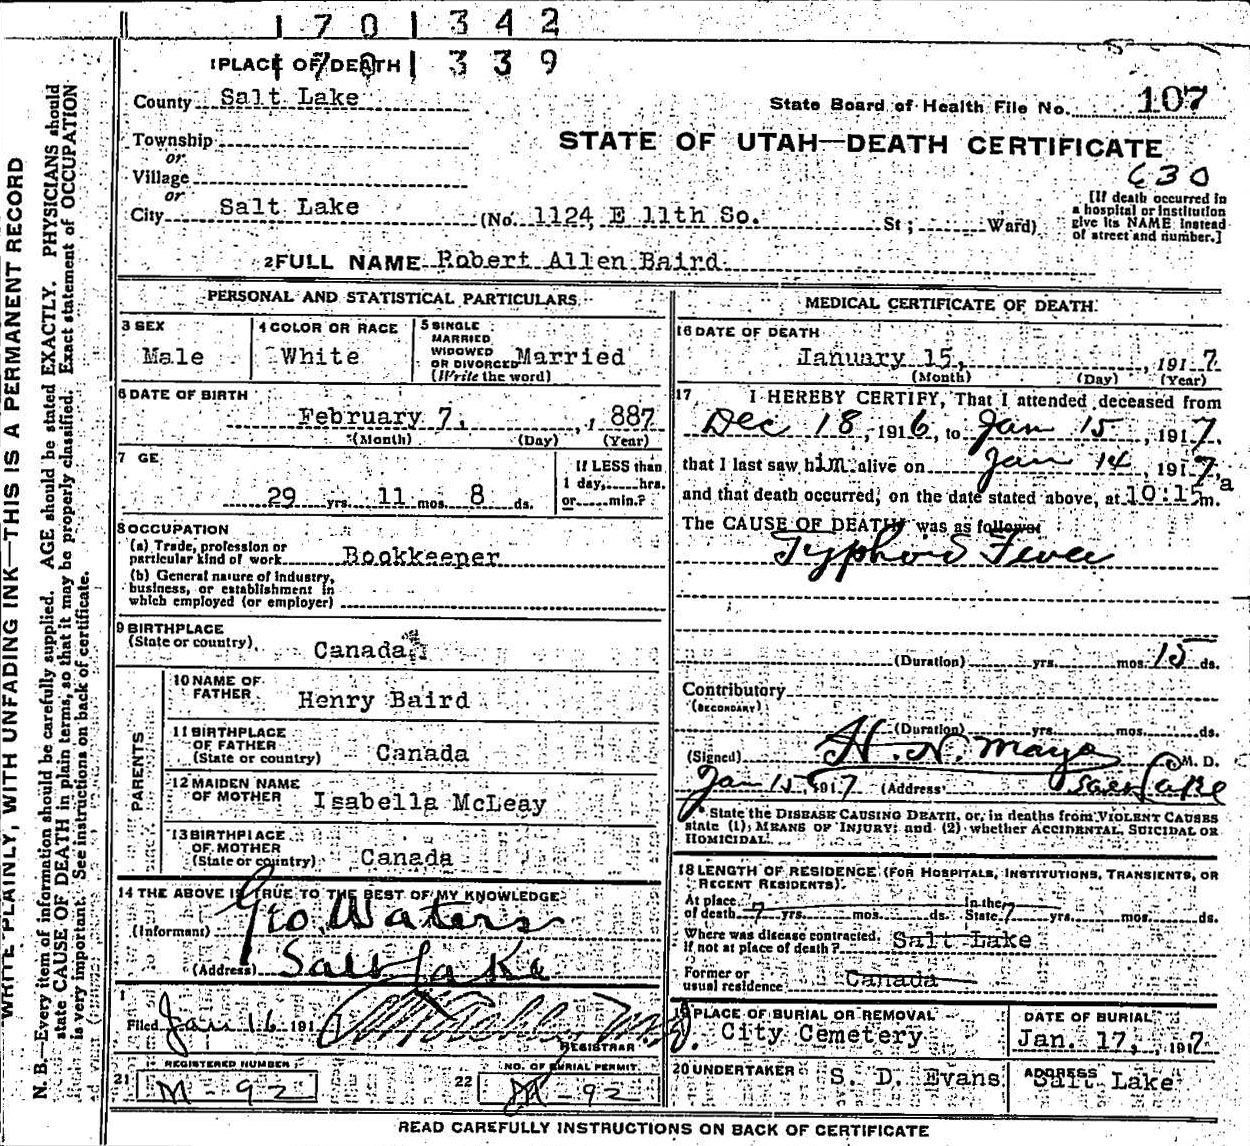 170 342
1 PLACE OF DEATH 170 339
County Salt Lake
State Board of Health File No. 107
Township
or
STATE OF UTAH—DEATH CERTIFICATE
Village
630
or
City Salt Lake (No. 1124 E 11th So. St; Ward)
[If death occurred in
a hospital or institution
give its NAME instead
of street and number.]
2 FULL NAME Robert Allen Baird
PERSONAL AND STATISTICAL PARTICULARS
3 SEX
Male
4 COLOR OR RACE
White
5 SINGLE
MARRIED
WIDOWED
OR DIVORCED Married
(Write the word)
6 DATE OF BIRTH
February 7, , 1887
(Month) (Day) (Year)
7 GE
29 yrs. 11 mos. 8 ds.
If LESS than
1 day, hrs.
or min.?
8 OCCUPATION
(a) Trade, profession or
particular kind of work Bookkeeper
(b) General nature of industry,
business, or establishment in
which employed (or employer)
9 BIRTHPLACE
(State or country) Canada
PARENTS
10 NAME OF
FATHER Henry Baird
11 BIRTHPLACE
OF FATHER
(State or country) Canada
12 MAIDEN NAME
OF MOTHER Isabella McLeay
13 BIRTHPLACE
OF MOTHER
(State or country) Canada
14 THE ABOVE IS TRUE TO THE BEST OF MY KNOWLEDGE
(Informant) Geo. Waters
(Address) Salt Lake
Filed Jan 16 191
REGISTRAR
REGISTERED NUMBER
21 M-92
NO. OF BURIAL PERMIT
22 M-92
MEDICAL CERTIFICATE OF DEATH.
16 DATE OF DEATH
January 15, , 1917
(Month) (Day) (Year)
17 I HEREBY CERTIFY, That I attended deceased from
Dec 18, 1916, to Jan 15, 1917,
that I last saw him alive on Jan 14, 1917,
and that death occurred, on the date stated above, at 10:15 a m.
The CAUSE OF DEATH* was as follows:
Typhoid Fever
(Duration) yrs. mos. 15 ds.
Contributory
(SECONDARY)
(Duration) yrs. mos. ds.
(Signed) H. N. Mayo M. D.
Jan 15, 1917 (Address) Salt Lake
* State the DISEASE CAUSING DEATH, or, in deaths from VIOLENT CAUSES
state (1) MEANS OF INJURY; and (2) whether ACCIDENTAL, SUICIDAL OR
HOMICIDAL.
18 LENGTH OF RESIDENCE (FOR HOSPITALS, INSTITUTIONS, TRANSIENTS, OR
RECENT RESIDENTS).
At place
of death 7 yrs. mos. ds. In the State 7 yrs. mos. ds.
Where was disease contracted,
if not at place of death? Salt Lake
Former or
usual residence Canada
19 PLACE OF BURIAL OR REMOVAL
City Cemetery
DATE OF BURIAL
Jan. 17, , 1917
20 UNDERTAKER S. D. Evans
ADDRESS Salt Lake
READ CAREFULLY INSTRUCTIONS ON BACK OF CERTIFICATE
WRITE PLAINLY, WITH UNFADING INK—THIS IS A PERMANENT RECORD
N. B.—Every item of information should be carefully supplied. AGE should be stated EXACTLY. PHYSICIANS should
state CAUSE OF DEATH in plain terms, so that it may be properly classified. Exact statement of OCCUPATION
is very important. See instructions on back of certificate.